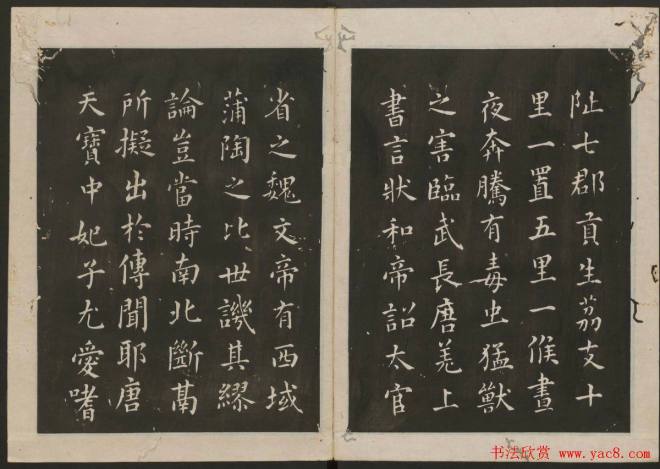 阯七郡貢生荔支十
里一置五里一候晝
夜奔騰有毒虫猛獸
之害臨武長唐羌上
書言狀和帝詔太官
省之魏文帝有西域
蒲陶之比世譏其繆
論豈當時南北斷鬲
所擬出於傳聞耶唐
天寶中妃子尤愛嗜
书法欣赏 www.yac8.com